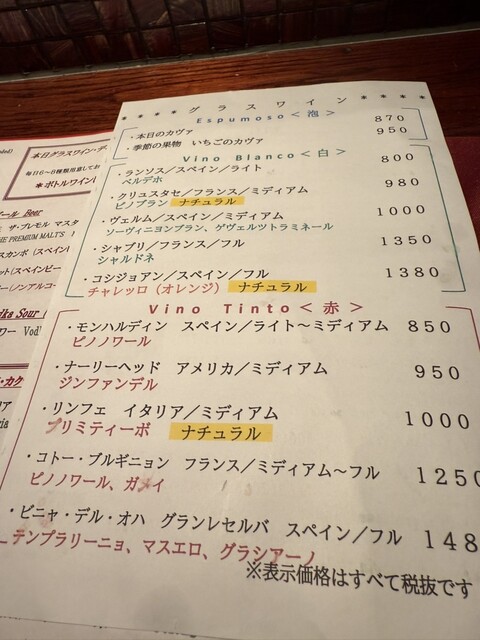 ****グラスワイン****
Espumoso<泡>
・本日のカヴァ 870
・季節の果物 いちごのカヴァ 950
Vino Blanco<白>
・ランソス／スペイン／ライト 800
ベルデホ
・クリュスタセ／フランス／ミディアム 980
ピノブラン ナチュラル
・ヴェルム／スペイン／ミディアム 1000
ソーヴィニヨンブラン、ゲヴェルツトラミネール
・シャブリ／フランス／フル 1350
シャルドネ
・コシジョアン／スペイン／フル 1380
チャレッロ（オレンジ） ナチュラル
Vino Tinto<赤>
・モンハルディン スペイン／ライト～ミディアム 850
ピノノワール
・ナーリーヘッド アメリカ／ミディアム 950
ジンファンデル
・リンフェ イタリア／ミディアム 1000
プリミティーボ ナチュラル
・コトー・ブルギニョン フランス／ミディアム～フル 1250
ピノノワール、ガメイ
・ビニャ・デル・オハ グランレセルバ スペイン／フル 148
テンプラリーニョ、マスエロ、グラシアーノ
※表示価格はすべて税抜です
本日グラスワイン・デ
＊ボトルワイン
ール Beer
THE PREMIUM MALT'S
スカンポ（スペイン
ット（スペインビー
（ノンアルコー
dka Sour
ワー Vod
・カク